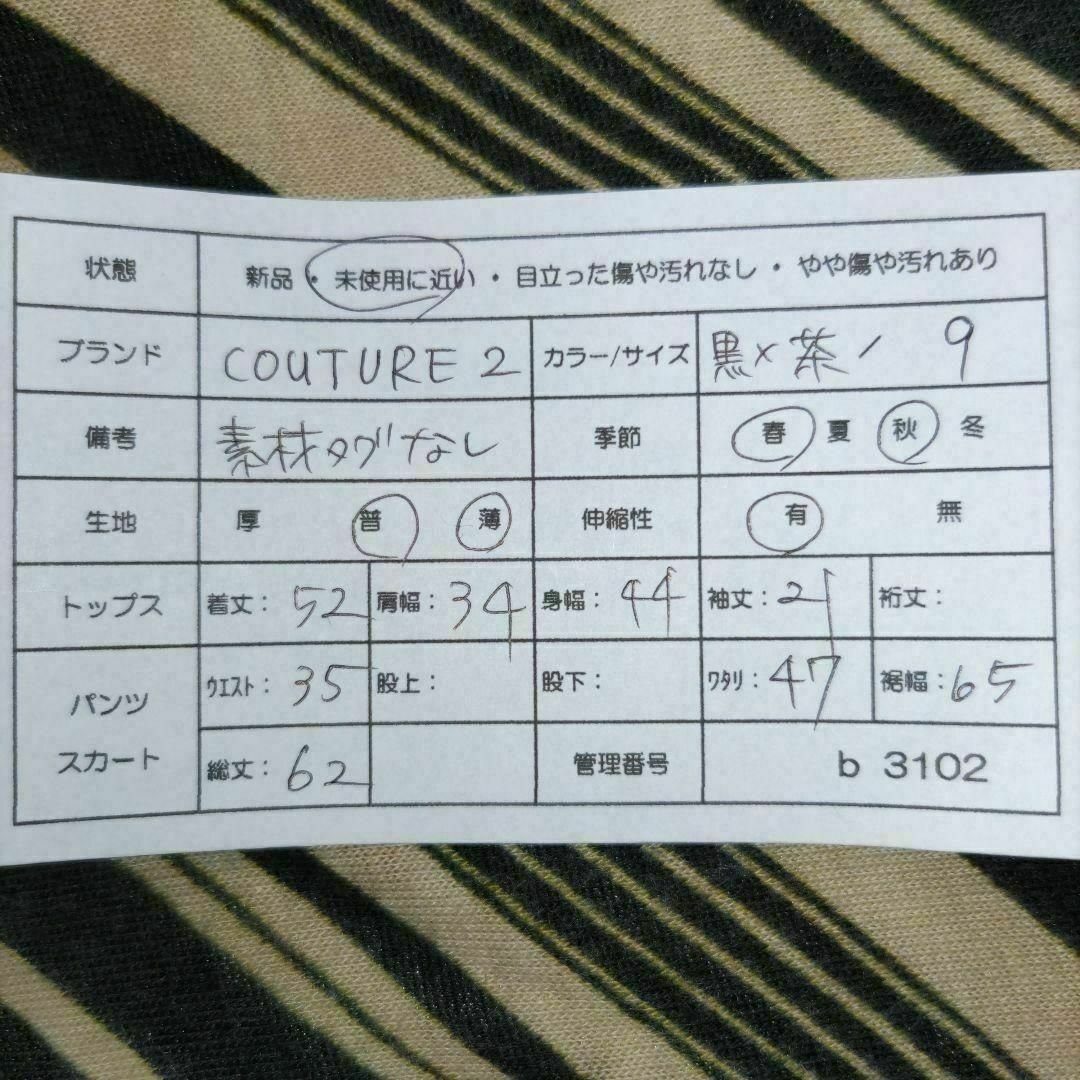 状態 新品・未使用に近い・目立った傷や汚れなし・やや傷や汚れあり
ブランド COUTURE 2 カラー/サイズ 黒×茶/ 9
備考 素材タグなし 季節 春 夏 秋 冬
生地 厚 普 薄 伸縮性 有 無
トップス 着丈: 52 肩幅: 34 身幅: 44 袖丈: 21 裄丈:
パンツ スカート ウエスト: 35 股上: 股下: ワタリ: 47 裾幅: 65
総丈: 62 管理番号 b 3102